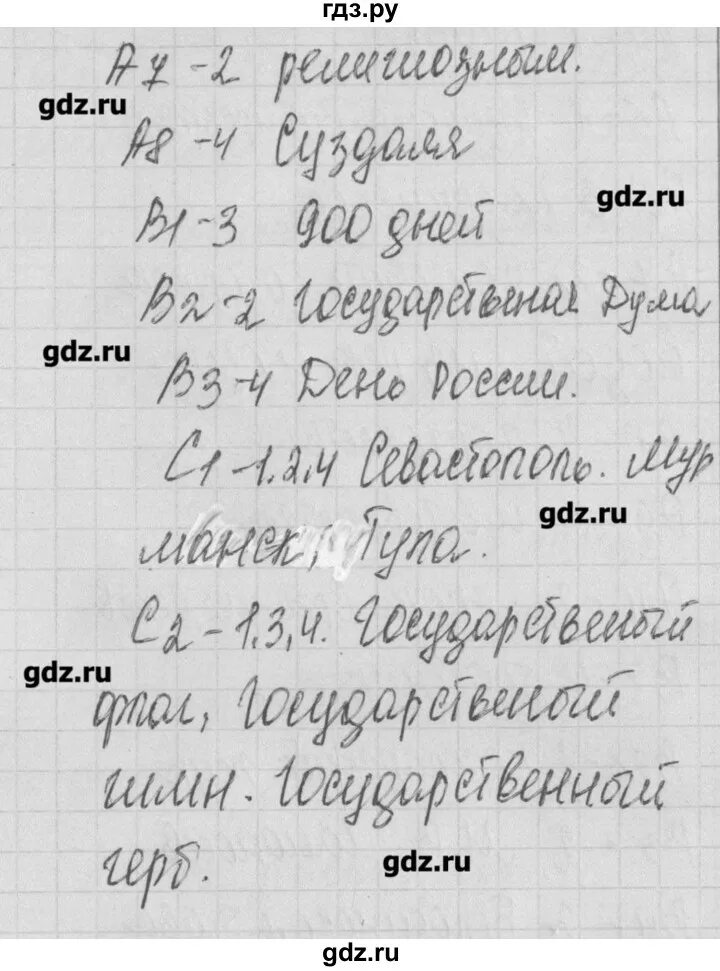 гдз.ру
А7 -2 религиозным.
gdz.ru
А8 -4 Суздаля
gdz.ru
В1-3 900 дней
В2-2 Государственая Дума
gdz.ru
В3-4 День России.
С1 -1.2,4 Севастополь. Мур
gdz.ru
манск, Тула.
С2 - 1,3,4. Государственый
gdz.ru
флаг, Государственый
гимн. Государственный
герб.
gdz.ru
gdz.ru